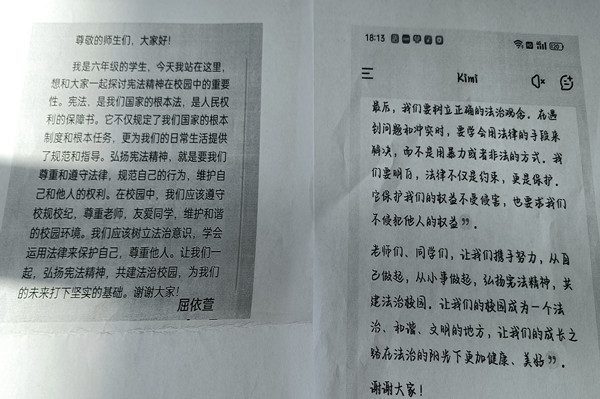 尊敬的师生们，大家好！
我是六年级的学生，今天我站在这里，
想和大家一起探讨宪法精神在校园中的重要
性。宪法，是我们国家的根本法，是人民权
利的保障书。它不仅规定了我们国家的根本
制度和根本任务，更为我们的日常生活提供
了规范和指导。弘扬宪法精神，就是要我们
尊重和遵守法律，规范自己的行为，维护自
己和他人的权利。在校园中，我们应该遵守
校规校纪，尊重老师，友爱同学，维护和谐
的校园环境。我们应该树立法治意识，学会
运用法律来保护自己，尊重他人。让我们一
起，弘扬宪法精神，共建法治校园，为我们
的未来打下坚实的基础。谢谢大家！
屈依萱
18:13
Kimi
最后，我们要树立正确的法治观念。在遇
到问题和冲突时，要学会用法律的手段来
解决，而不是用暴力或者非法的方式。我
们要明白，法律不仅是约束，更是保护。
它保护我们的权益不受侵害，也要求我们
不侵犯他人的权益”。
老师们、同学们，让我们携手努力，从自
己做起，从小事做起，弘扬宪法精神，共
建法治校园。让我们的校园成为一个法
治、和谐、文明的地方，让我们的成长之
路在法治的阳光下更加健康、美好”。
谢谢大家！